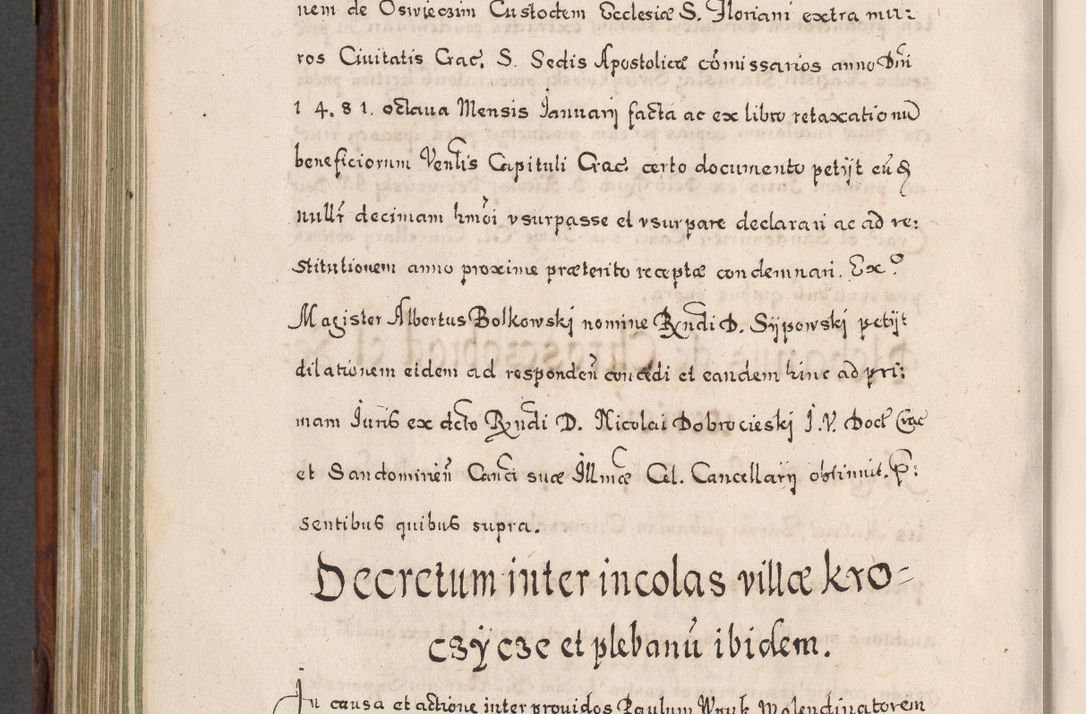 nem de Oswięczim Custodem Ecclesiæ S. Floriani extra mu:
ros Ciuitatis Crac. S. Sedis Apostolicæ cōmissarios anno Dñi
1 4. 8 1. octaua Mensis Januarij facta ac ex libro retaxationū
beneficiorum Venłis Capituli Crac. certo documento petijt eūd
nullr̃ decimam hm̃ōi vsurpasse et vsurpare declarari ac ad re:
stitutionem anno proxime præterito receptæ condemnari. Ex º
Magister Albertus Bolkowskj nomine Rñdi D. Sijpowskj petijt
dilationem eidem ad respondeñ concedi et eandem hinc ad pri:
mam Juris ex dcto Rñdi D. Nicolai Dobrocieskj J. V. Doct Crac
et Sandomireñ Canci suæ Illmæ Cel. Cancellarij obtinuit. P̃:
sentibus quibus supra.
Decretum inter incolas villæ kro=
czÿcze et plebanū ibidem.
In causa et actione inter prouidos Paulum Wnuk Molendinatorem